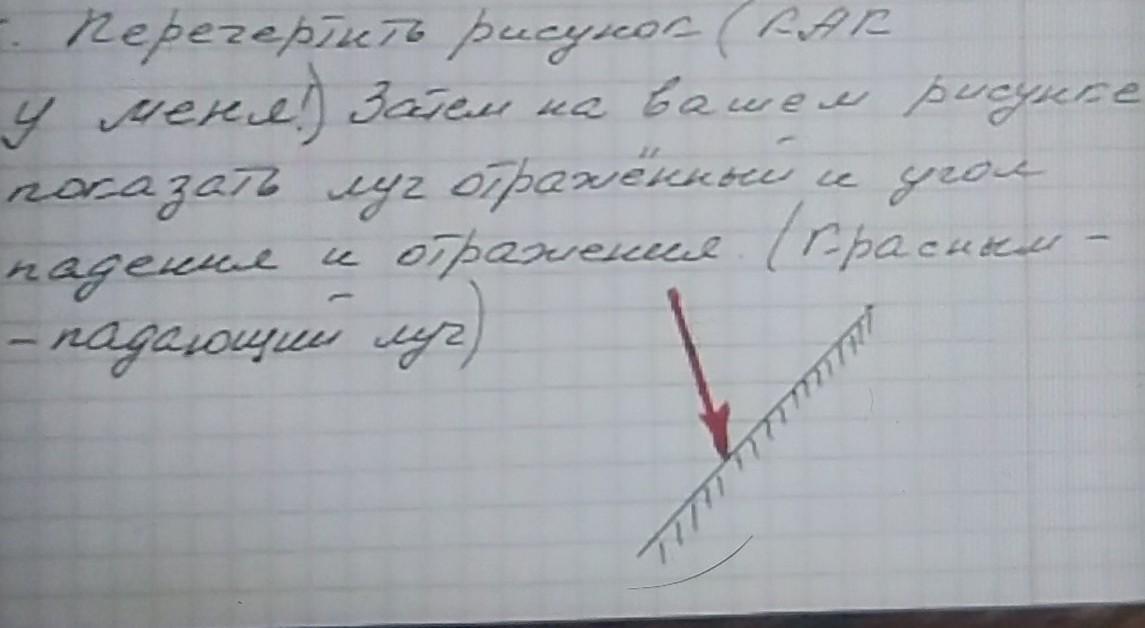 . Перечертить рисунок (как
у меня!) Затем на вашем рисунке
показать луч отражённый и угол
падения и отражения. (красным -
- падающий луч)